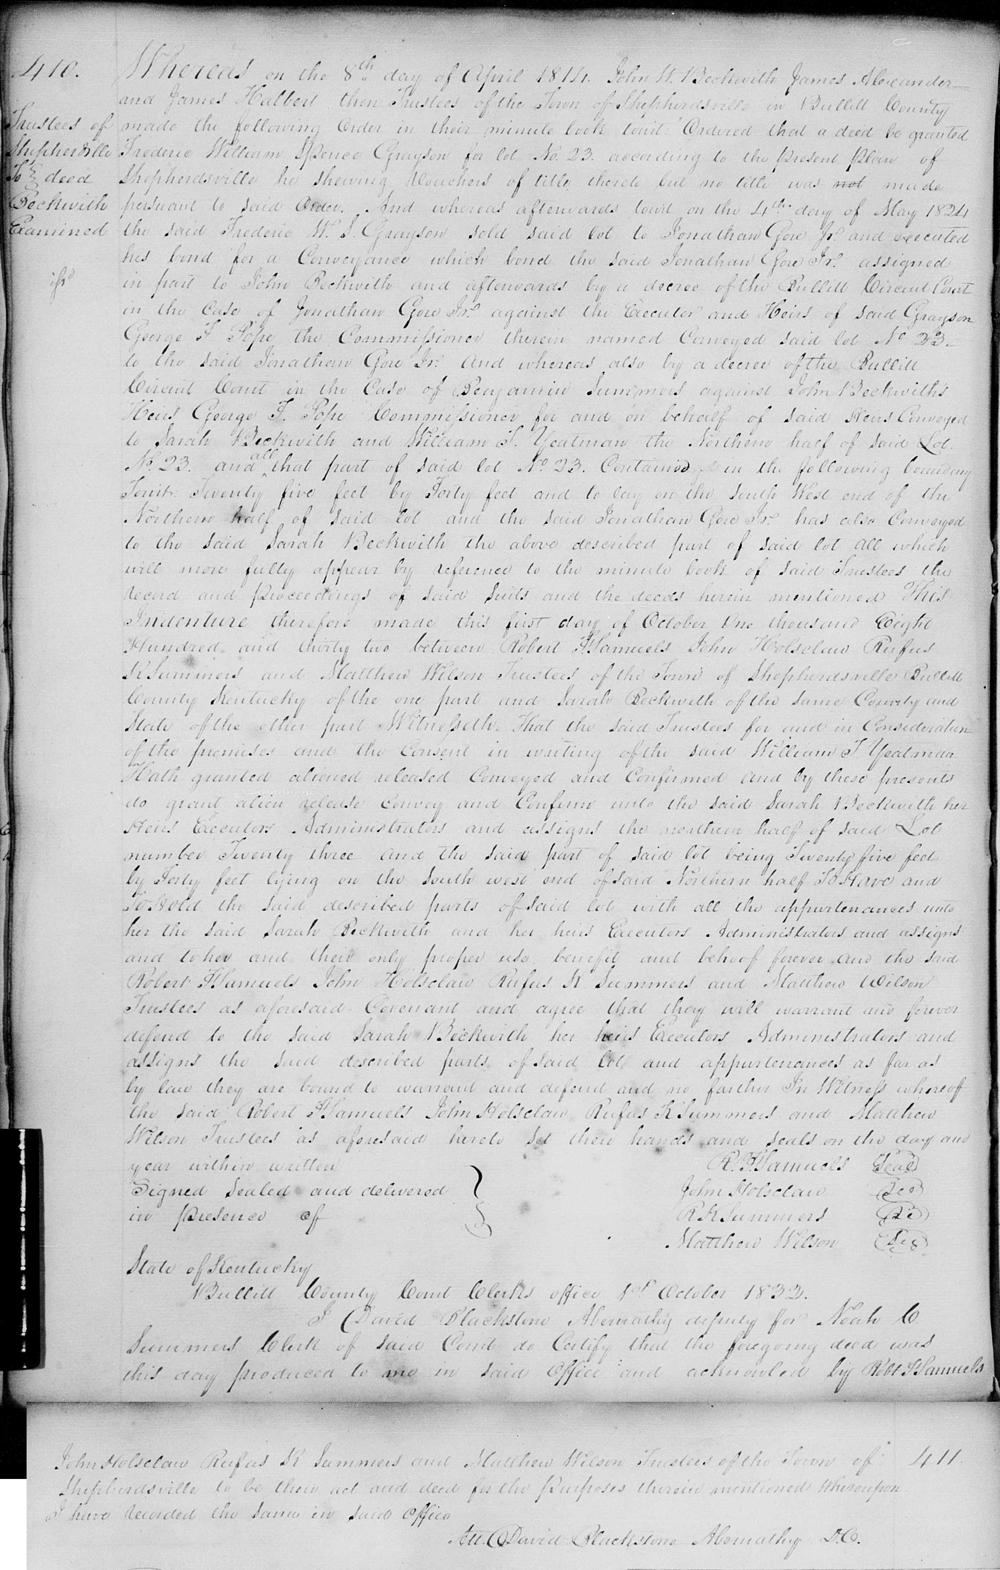 410.
Trustees of
Shepherdsville
To } deed
Beckwith
Examined
Whereas on the 8th day of April 1814. John W. Beckwith James Alexander
and James Halbert then Trustees of the Town of Shepherdsville in Bullitt County
made the following Order in their minute book towit: Ordered that a deed be granted
Frederic William Spence Grayson for lot No. 23. according to the present plan of
Shepherdsville he shewing Vouchers of title thereto but no title was not made
pursuant to said Order. And whereas afterwards towit on the 4th day of May 1824
the said Frederic W. S. Grayson sold said lot to Jonathan Gore Jr. and executed
his bond for a Conveyance which bond the said Jonathan Gore Jr. assigned
in part to John Beckwith and afterwards by a decree of the Bullitt Circuit Court
in the Case of Jonathan Gore Jr. against the Executor and Heirs of said Grayson
George F. Pope the Commissioner therein named Conveyed said lot No 23.
to the said Jonathan Gore Jr. And whereas also by a decree of the Bullitt
Circuit Court in the Case of Benjamin Summers against John Beckwiths
Heirs George F. Pope Commissioner for and on behalf of said Heirs Conveyed
to Sarah Beckwith and William T. Yeatman the Northern half of said Lot
No. 23. and all that part of said lot No. 23. Contained in the following boundary
Towit: Twenty five feet by Forty feet and to lay on the South West end of the
Northern half of said lot and the said Jonathan Gore Jr. has also Conveyed
to the said Sarah Beckwith the above described part of said lot all which
will more fully appear by reference to the minute book of said Trustees the
record and proceedings of said Suits and the deeds herein mentioned This
Indenture therefore made this first day of October One thousand Eight
Hundred and thirty two between Robert F Samuels John Holsclaw Rufus
K Summers and Matthew Wilson Trustees of the Town of Shepherdsville Bullitt
County Kentucky of the one part and Sarah Beckwith of the same County and
State of the other part Witnesseth: That the said Trustees for and in Consideration
of the premises and the Consent in writing of the said William T Yeatman
Hath granted aliened released Conveyed and Confirmed and by these presents
do grant alien release Convey and Confirm unto the said Sarah Beckwith her
Heirs Executors Administrators and assigns the northern half of said Lot
number Twenty three and the said part of said lot being Twenty five feet
by Forty feet lying on the South west end of said Northern half To Have and
To Hold the said described parts of said lot with all the appurtenances unto
her the said Sarah Beckwith and her heirs Executors Administrators and assigns
and to her and their only proper use benefit and behoof forever and the said
Robert F Samuels John Holsclaw Rufus K Summers and Matthew Wilson
Trustees as aforesaid Covenant and agree that they will warrant and forever
defend to the said Sarah Beckwith her heirs Executors Administrators and
assigns the said described parts of said lot and appurtenances as far as
by law they are bound to warrant and defend and no farther In Witness whereof
the said Robert F Samuels John Holsclaw Rufus K Summers and Matthew
Wilson Trustees as aforesaid hereto Set their hands and seals on the day and
year within written
Signed Sealed and delivered
in presence of
R. F Samuels Seal
John Holsclaw
R K Summers
Matthew Wilson
State of Kentucky
Bullitt County Court Clerks office 1st October 1832.
I David Blackstone Abernathy deputy for Noah C
Summers Clerk of said Court do Certify that the foregoing deed was
this day produced to me in said Office and acknowled by Robt F Samuels
John Holsclaw Rufus K Summers and Matthew Wilson Trustees of the Town of 411.
Shepherdsville to be their act and deed for the purposes therein mentioned Whereupon
I have recorded the same in said office
Att. David Blackstone Abernathy D.C.